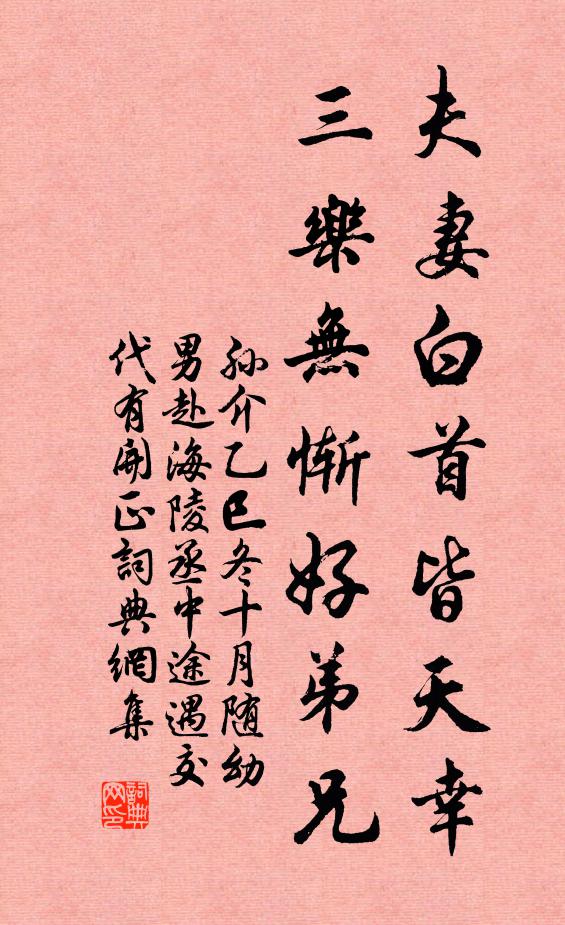 夫妻白首皆天幸
三樂無慚好弟兄
孫介乙巳冬十月随幼
男赴海陵丞中途遇交
代有開正詞典網集
詞典
网印